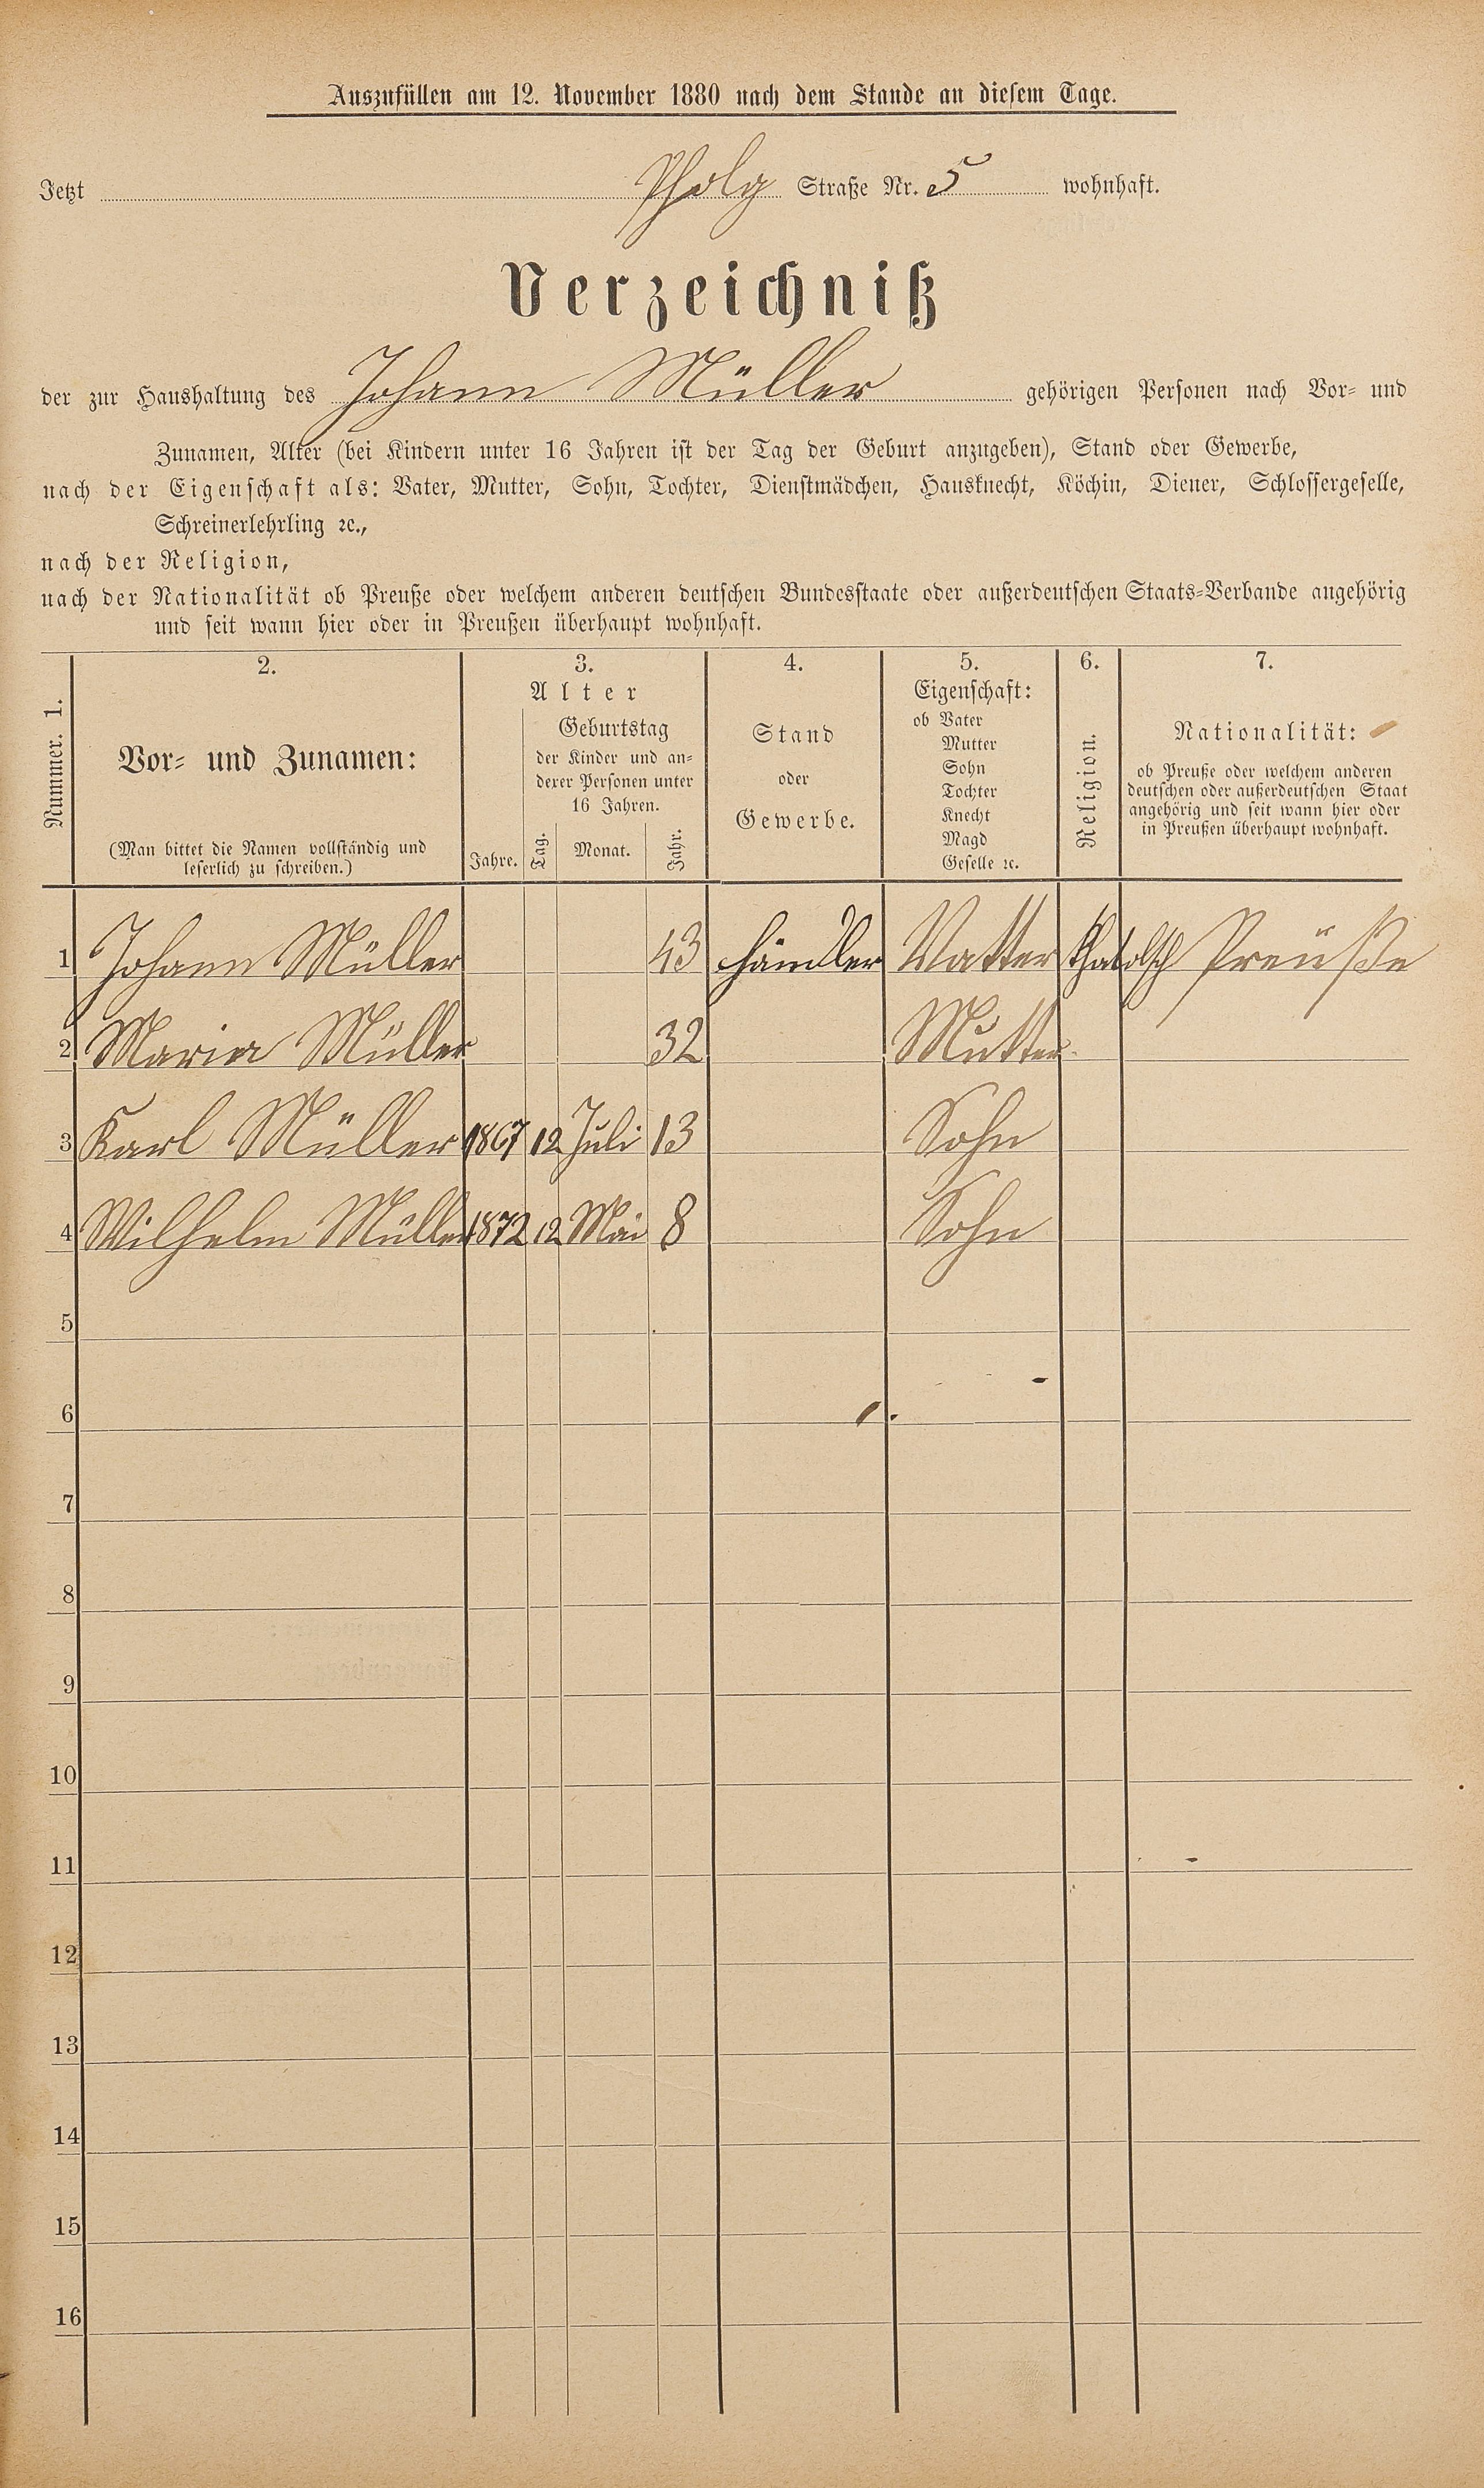 Auszufüllen am 12. November 1880 nach dem Stande an diesem Tage.
Jetzt Straße Nr. 5 wohnhaft.
Verzeichniß
der zur Haushaltung des Johann Müller gehörigen Personen nach Vor- und
Zunamen, Alter (bei Kindern unter 16 Jahren ist der Tag der Geburt anzugeben), Stand oder Gewerbe,
nach der Eigenschaft als: Vater, Mutter, Sohn, Tochter, Dienstmädchen, Hausknecht, Köchin, Diener, Schlossergeselle,
Schreinerlehrling ꝛc.,
nach der Religion,
nach der Nationalität ob Preuße oder welchem anderen deutschen Bundesstaate oder außerdeutschen Staats-Verbande angehörig
und seit wann hier oder in Preußen überhaupt wohnhaft.
Nummer. 1.
2.
Vor- und Zunamen:
(Man bittet die Namen vollständig und
leserlich zu schreiben.)
3.
Alter
Geburtstag
der Kinder und an-
derer Personen unter
16 Jahren.
Jahre. Tag. Monat. Jahr.
4.
Stand
oder
Gewerbe.
5.
Eigenschaft:
ob Vater
Mutter
Sohn
Tochter
Knecht
Magd
Geselle ꝛc.
6.
Religion.
7.
Nationalität:
ob Preuße oder welchem anderen
deutschen oder außerdeutschen Staat
angehörig und seit wann hier oder
in Preußen überhaupt wohnhaft.
1 Johann Müller 43 händler Vatter Khatolsch Preüße
2 Maria Müller 32 Mutter
3 Karl Müller 1867 12 Juli 13 Sohn
4 Wilhelm Müller 1872 12 Mai 8 Sohn
5
6
7
8
9
10
11
12
13
14
15
16